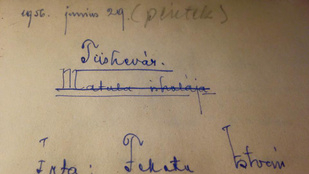 1956. június 29. (péntek)
Tüskevár.
Matula iskolája
Írta: Fekete István